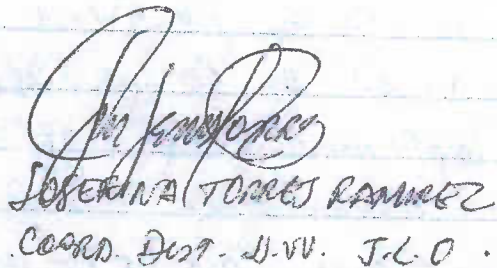 JOSEFINA TORRES RAMIREZ
COORD. DIST. J.VV. J.L.O.